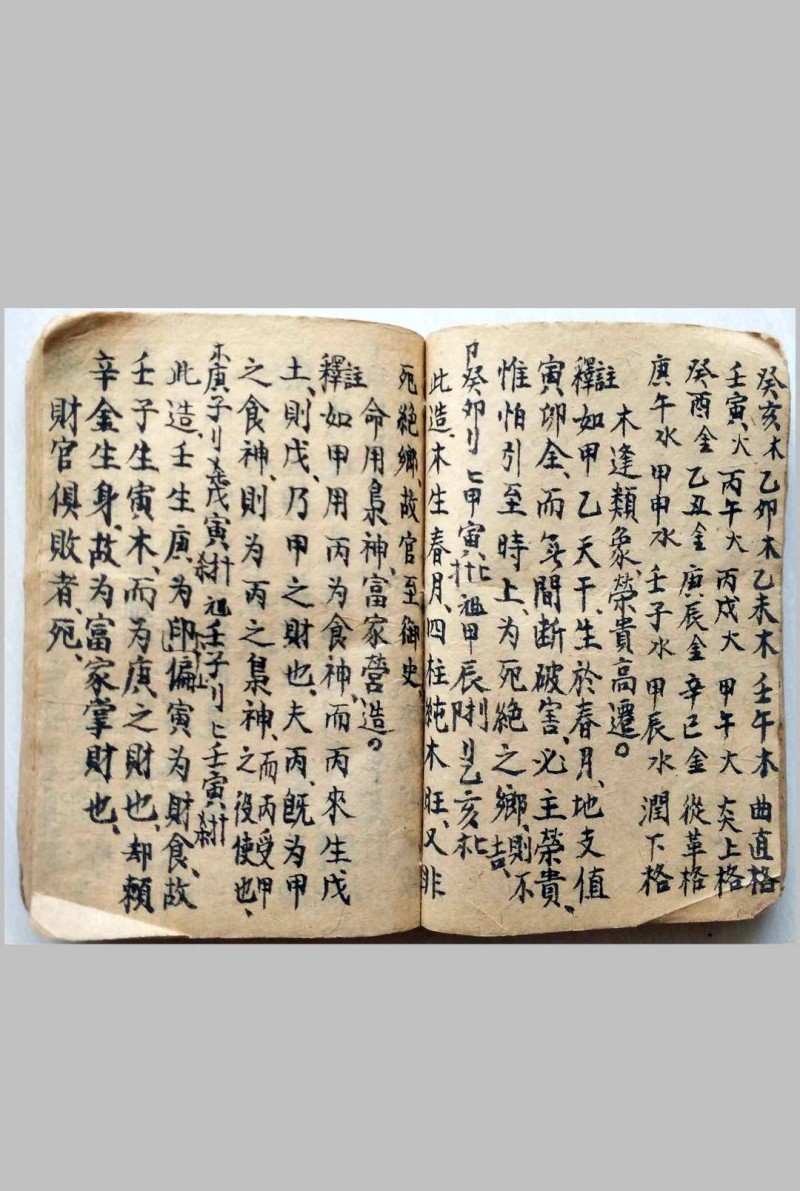 癸亥木 乙卯木 乙未木 壬午木 曲直格
壬寅火 丙午火 丙戌火 甲午火 炎上格
癸酉金 乙丑金 庚辰金 辛巳金 從革格
庚午水 甲申水 壬子水 甲辰水 潤下格
木逢類象、榮貴高遷。
註釋如甲乙天干、生於春月、地支值
寅卯全、而無間断破害、必主榮貴、
惟怕引至時上、为死絶之鄉、則不吉、
癸卯 甲寅 祖甲辰 乙亥
此造、木生春月、四柱純木旺、又非
死絶鄉、故官至御史、
命用梟神、富家營造。
註釋如甲用丙为食神、而丙來生戊
土、則戊、乃甲之財也、夫丙、既为甲
之食神、則为丙之梟神、而丙受甲之役使也、
庚子 戊寅 祖壬子 壬寅
此造、壬生庚为印、偏寅为財食、故
壬子生寅木、而为庚之財也、却賴
辛金生身、故为富家掌財也、
財官俱敗者、死、